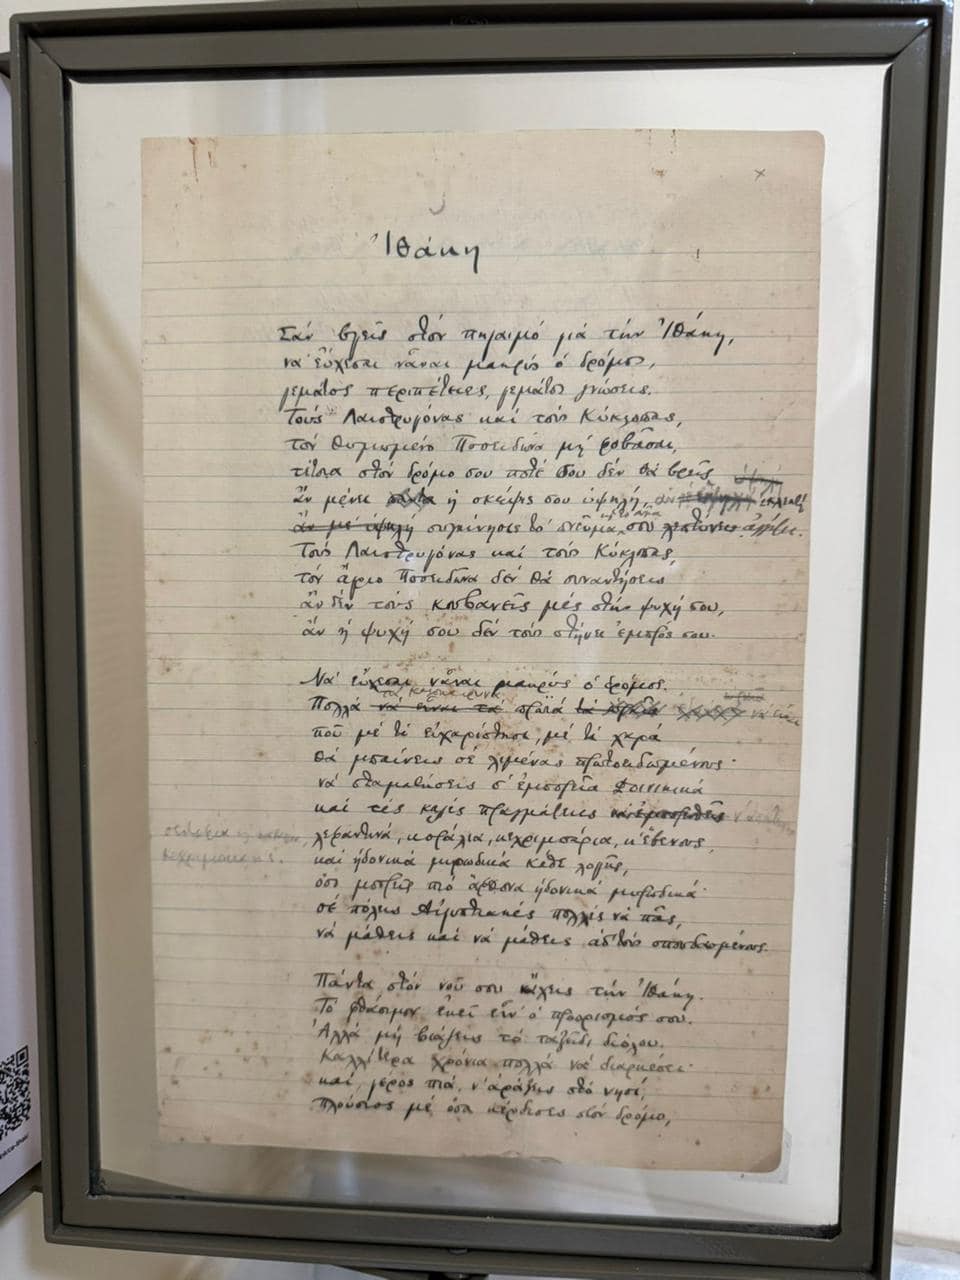 Ἰθάκη
Σάν βγεῖς στόν πηγαιμό γιά τήν Ἰθάκη,
νά εὔχεσαι νἆναι μακρύς ὁ δρόμος,
γεμάτος περιπέτειες, γεμάτος γνώσεις.
Τούς Λαιστρυγόνας καί τούς Κύκλωπας,
τόν θυμωμένο Ποσειδῶνα μή φοβᾶσαι,
τέτοια στόν δρόμο σου ποτέ σου δέν θά βρεῖς
ὑψηλή
ἄν μένει πάντα ἡ σκέψις σου ὑψηλή, ἄν ἐκλεκτή
ἄν μέ ὑψηλή συγκίνησις τό πνεῦμα σου ἀγγίζει.
Τούς Λαιστρυγόνας καί τούς Κύκλωπας,
τόν ἄγριο Ποσειδῶνα δέν θά συναντήσεις
ἄν δέν τούς κουβανεῖς μές στήν ψυχή σου,
ἄν ἡ ψυχή σου δέν τούς στήνει ἐμπρός σου.
Νά εὔχεσαι νἆναι μακρύς ὁ δρόμος.
τά καλοκαιρινά
Πολλά νά εἶναι τά πρωϊά νά εἶναι
πού μέ τί εὐχαρίστησι, μέ τί χαρά
θά μπαίνεις σέ λιμένας πρωτοειδωμένους·
νά σταματήσεις σ' ἐμπορεῖα Φοινικικά
καί τές καλές πραγμάτειες
σεντέφια καί
λεβαντινά, κοράλλια, κεχριμπάρια, κ' ἔβενους,
καί ἡδονικά μυρωδικά κάθε λογῆς,
ὅσο μπορεῖς πιό ἄφθονα ἡδονικά μυρωδικά·
σέ πόλεις Αἰγυπτιακές πολλές νά πᾶς,
νά μάθεις καί νά μάθεις ἀπ' τούς σπουδασμένους.
Πάντα στόν νοῦ σου νἄχεις τήν Ἰθάκη.
Τό φθάσιμον ἐκεῖ εἶν' ὁ προορισμός σου.
Ἀλλά μή βιάζεις τό ταξεῖδι διόλου.
Καλλίτερα χρόνια πολλά νά διαρκέσει·
καί, γέρος πιά, ν' ἀράξεις στό νησί,
πλούσιος μέ ὅσα κέρδισες στόν δρόμο,